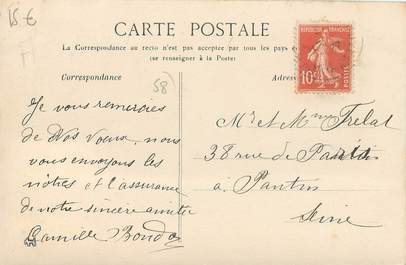 15 €
CARTE POSTALE
La Correspondance au recto n'est pas acceptée par tous les pays
(se renseigner à la Poste)
Correspondance
58)
Je vous remercies
de Vos Vœux, nous
vous envoyons les
nôtres et l'assurance
de notre sincère amitié
Camille
REPUBLIQUE FRANÇAISE
10c
POSTES
Mr et Mme Trelat
38 rue de Paris
à Pantin
Seine